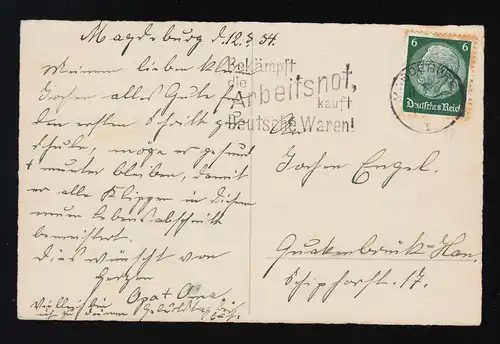 Magdeburg d. 12.3.34.
Meinem lieben kleinen
Jochen alles Gute für
den ersten Schritt zur
Schule, möge er gesund
+ munter bleiben, damit
er alle Klippen in diesem
neuen Lebensabschnitt
bemeistert.
Dies wünscht von
Herzen
Opa + Oma
Vielleicht bin
ich zu deinem Geburtstag bei
Bekämpft
die
Arbeitsnot,
kauft
Deutsche Waren!
6 6
Deutsches Reich
An
Jochen Engel.
Quakenbrück-Han.
Schiphorststr. 17.